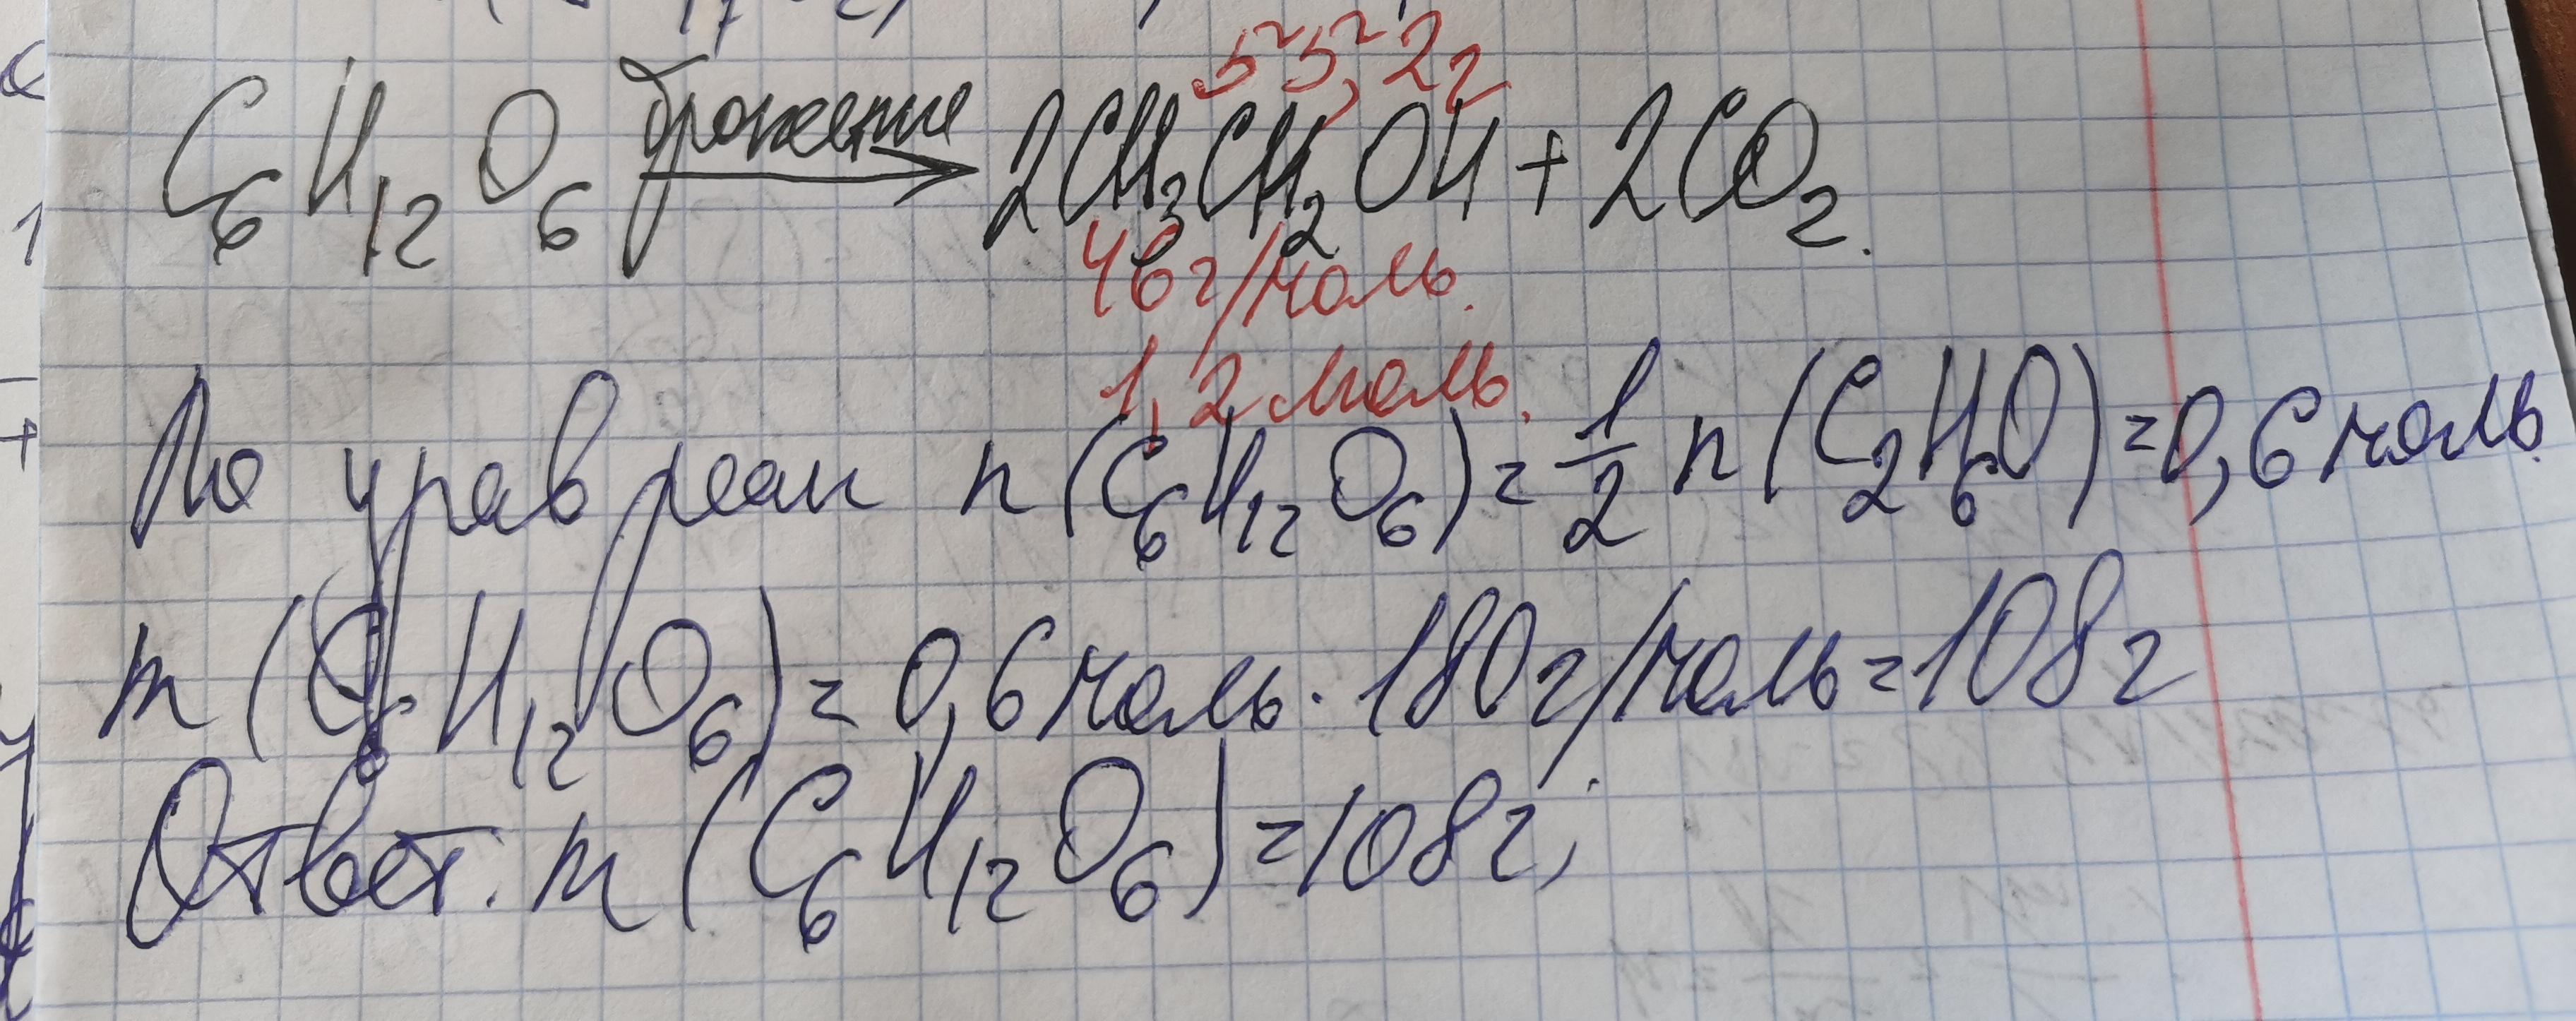 55,2г
C₆H₁₂O₆ брожение → 2CH₃CH₂OH + 2CO₂.
46г/моль.
1,2 моль.
По урав реак n(C₆H₁₂O₆) = 1/2 n(C₂H₆O) = 0,6 моль.
m(C₆H₁₂O₆) = 0,6 моль · 180г/моль = 108г
Ответ: m(C₆H₁₂O₆) = 108г;